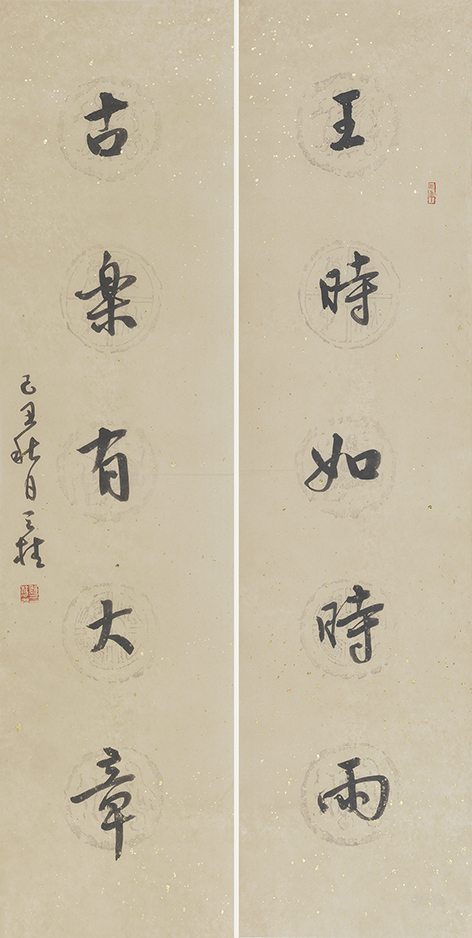 王時如時雨
古楽有大章
己丑秋日